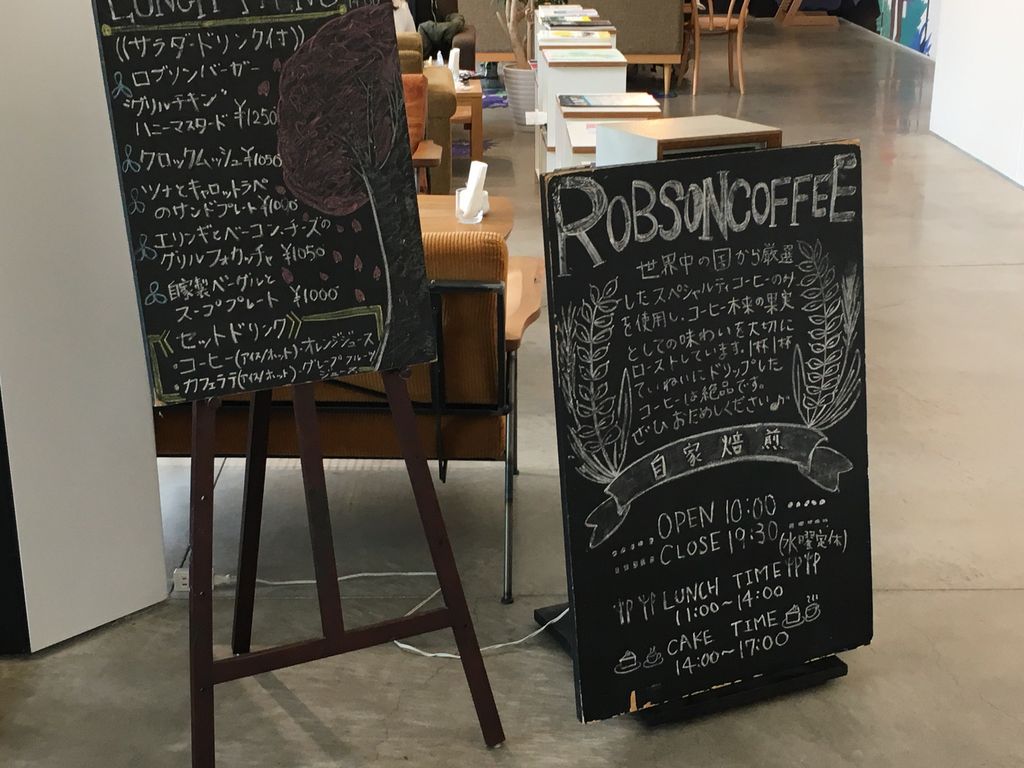 LUNCH MENU
((サラダ・ドリンク付))
ロブソンバーガー
グリルチキン
ハニーマスタード ¥1250
クロックムッシュ ¥1050
ツナとキャロットラペ
のサンドプレート ¥1000
エリンギとベーコン・チーズの
グリルフォカッチャ ¥1050
自家製ベーグルと
スーププレート ¥1000
セットドリンク
・コーヒー(アイス/ホット)・オレンジジュース
・カフェラテ(アイス/ホット)・グレープフルーツ
ジュース
ROBSONCOFFEE
世界中の国から厳選
したスペシャルティコーヒーのみ
を使用し、コーヒー本来の果実
としての味わいを大切に
ローストしています。1杯1杯
ていねいにドリップした
コーヒーは絶品です。
ぜひおためしください♪
自家焙煎
OPEN 10:00
CLOSE 19:30 (水曜定休)
LUNCH TIME
11:00~14:00
CAKE TIME
14:00~17:00